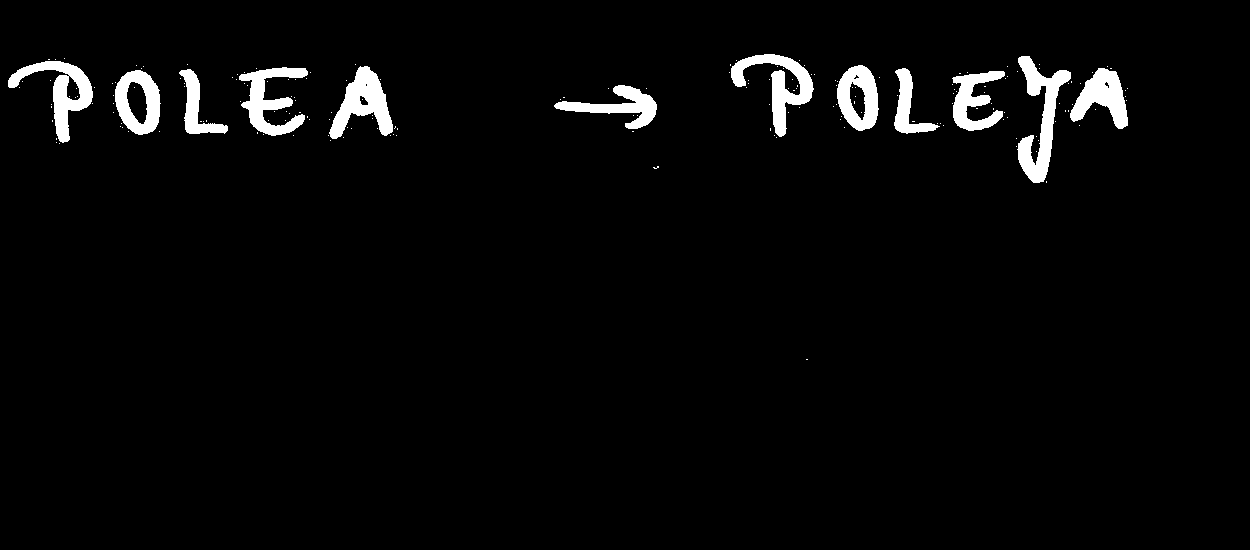 POLEA → POLEYA